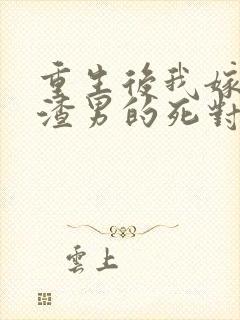 重生後我嫁
渣男的死對
雲上